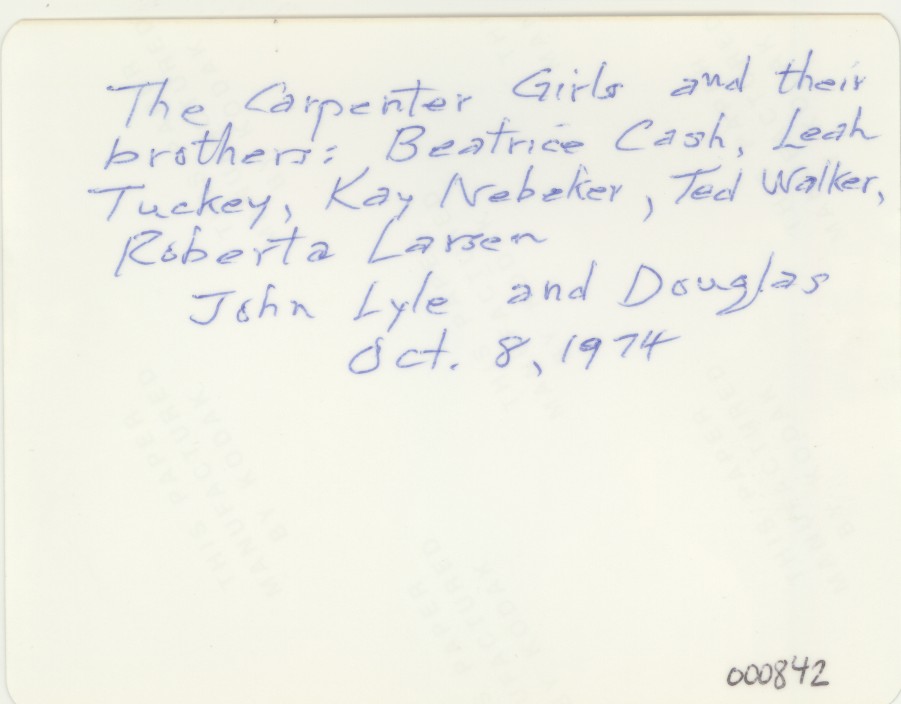 The Carpenter Girls and their
brothers: Beatrice Cash, Leah
Tuckey, Kay Nebeker, Ted Walker,
Roberta Larsen
John Lyle and Douglas
Oct. 8, 1974
THIS PAPER
MANUFACTURED
BY KODAK
000842